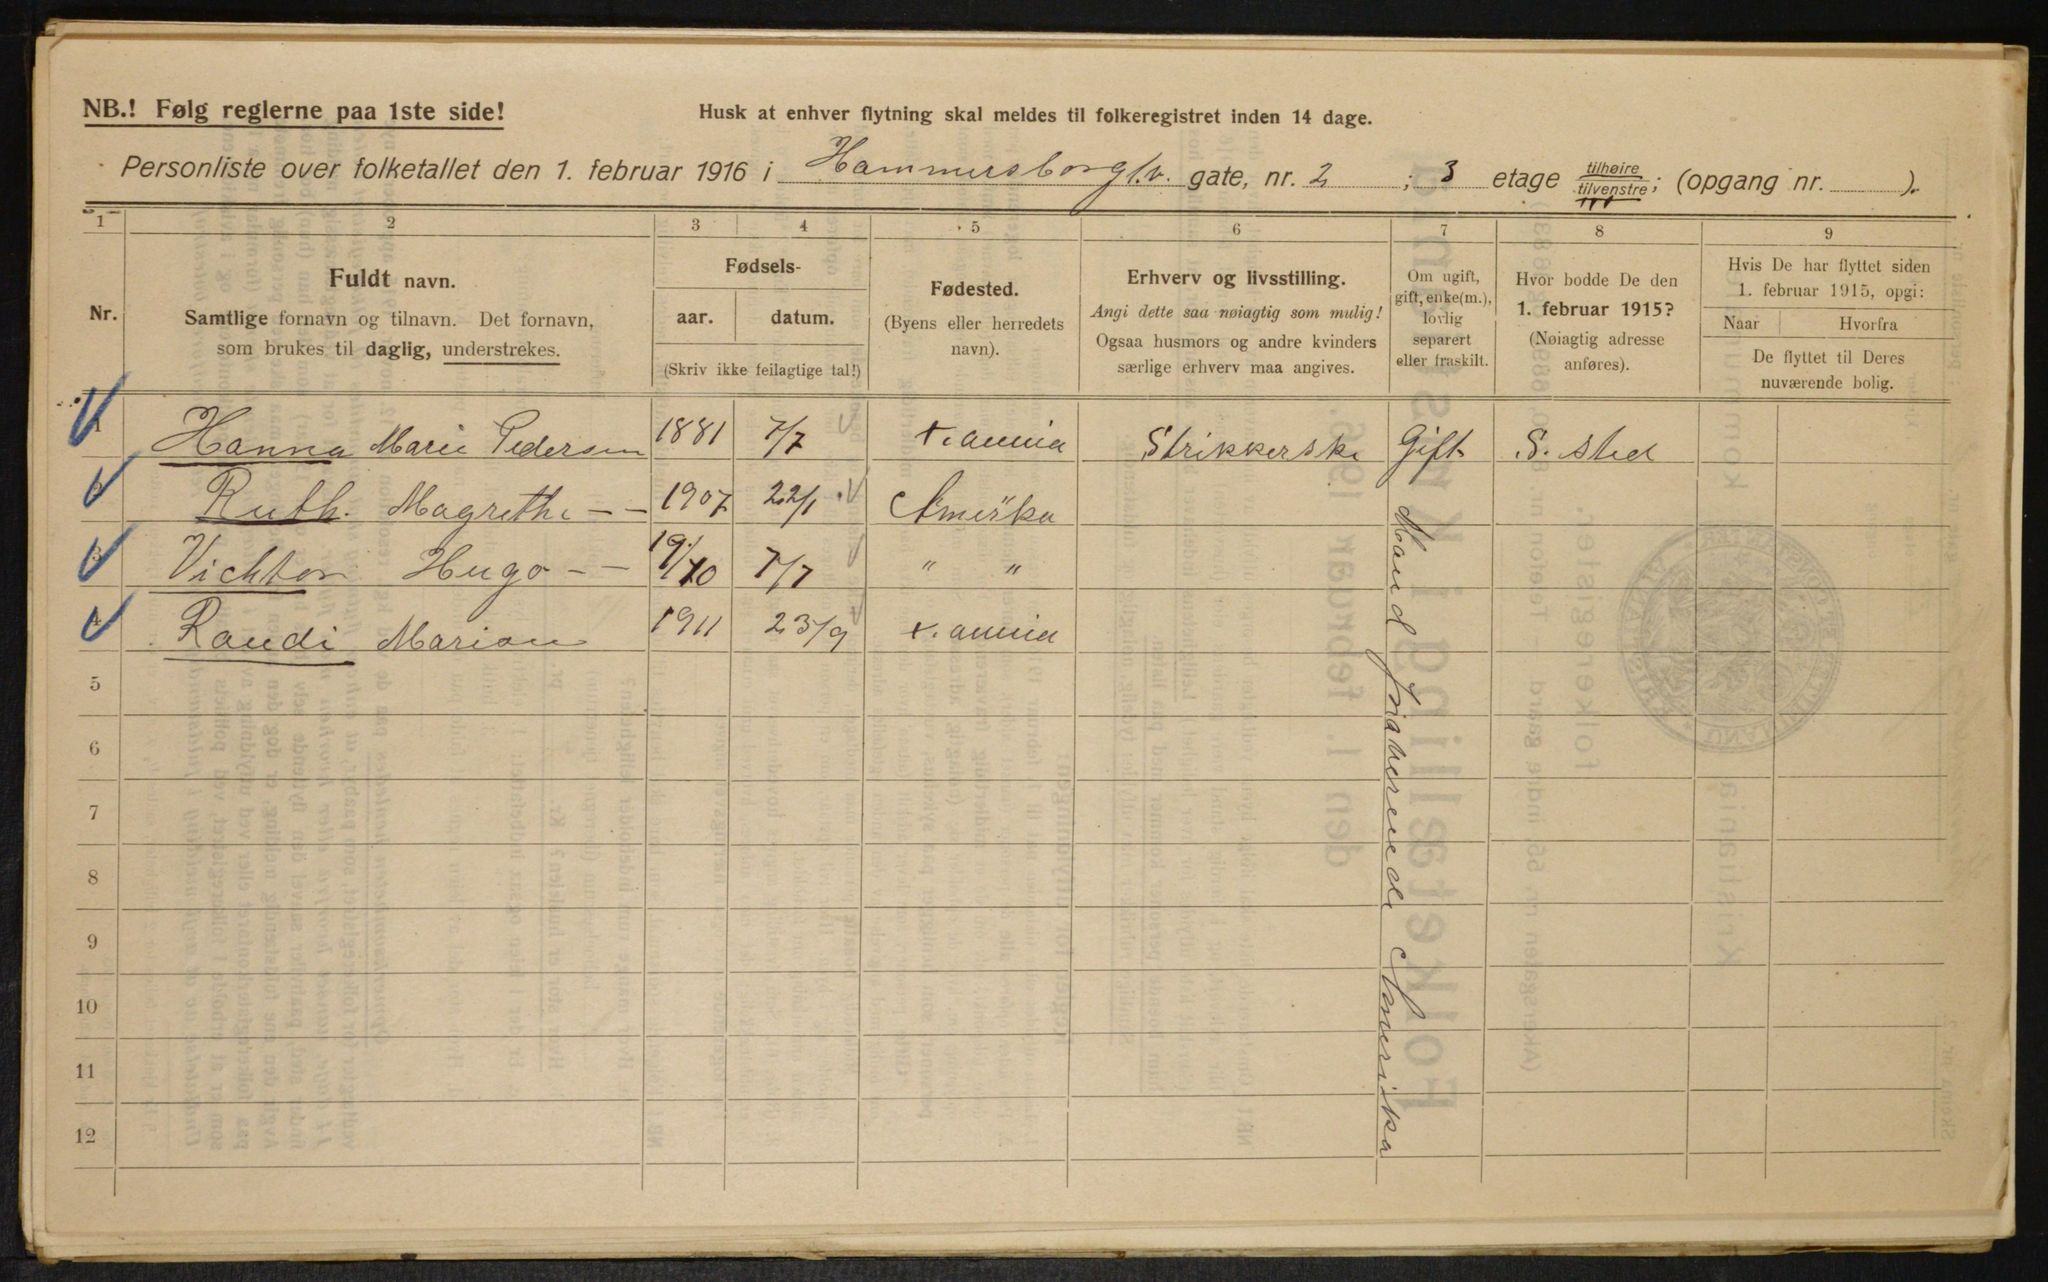 NB.! Følg reglerne paa 1ste side!
Husk at enhver flytning skal meldes til folkeregistret inden 14 dage.
Personliste over folketallet den 1. februar 1916 i Hammersborg t.v. gate, nr. 2 ; 3 etage tilhøire tilvenstre; (opgang nr. ).
1 2 3 4 5 6 7 8 9
Nr.
Fuldt navn.
Samtlige fornavn og tilnavn. Det fornavn,
som brukes til daglig, understrekes.
Fødsels-
aar. datum.
(Skriv ikke feilagtige tal!)
Fødested.
(Byens eller herredets
navn).
Erhverv og livsstilling.
Angi dette saa nøiagtig som mulig!
Ogsaa husmors og andre kvinders
særlige erhverv maa angives.
Om ugift,
gift, enke(m.),
lovlig
separert
eller fraskilt.
Hvor bodde De den
1. februar 1915?
(Nøiagtig adresse
anføres).
Hvis De har flyttet siden
1. februar 1915, opgi:
Naar Hvorfra
De flyttet til Deres
nuværende bolig.
1 Hanna Marie Pedersen 1881 7/7 Kr.ania Strikkerske Gift S. sted
2 Ruth. Magrethe – – 1907 22/1 Amerika
3 Vichtor Hugo – – 19/10 7/7 " "
4 Randi Marion 1911 23/9 Kr.ania
Mand fraværende Amerika
5
6
7
8
9
10
11
12